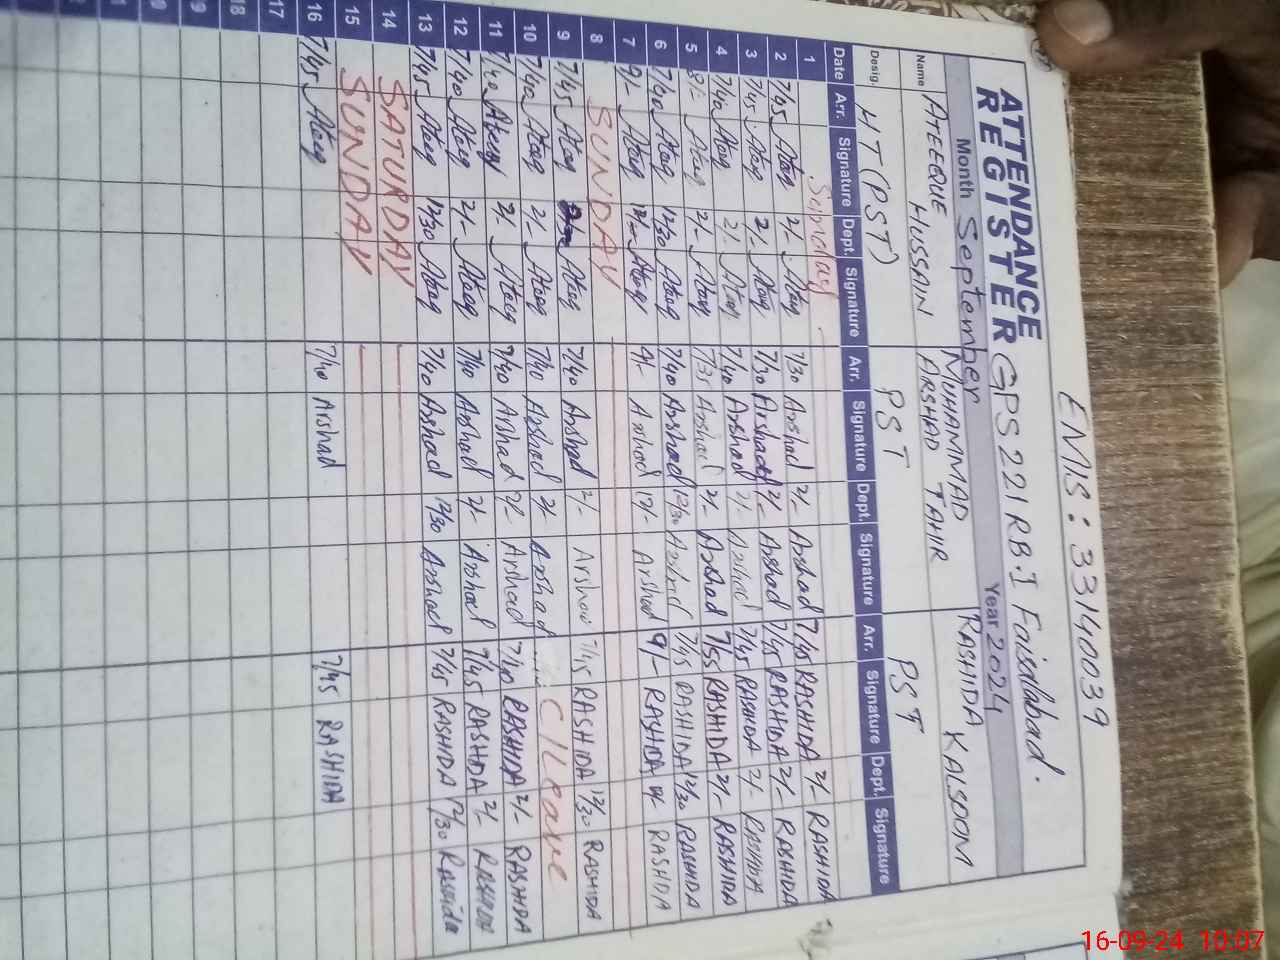 EMIS: 33140039
ATTENDANCE REGISTER
GPS 221 RB-I Faisalabad.
Month September Year 2024
Name ATEEQUE HUSSAIN MUHAMMAD ARSHAD TAHIR RASHIDA KALSOOM
Desig. HT (PST) PST PST
Date Arr. Signature Dept. Signature Arr. Signature Dept. Signature Arr. Signature Dept. Signature
1 Sunday
2 7/45 Ateeq 2/- Ateeq 7/30 Arshad 2/- Arshad 7/45 RASHIDA 2/- RASHIDA
3 7/45 Ateeq 2/- Ateeq 7/30 Arshad 2/- Arshad 7/45 RASHIDA 2/- RASHIDA
4 7/40 Ateeq 2/- Ateeq 7/40 Arshad 2/- Arshad 7/45 RASHIDA 2/- RASHIDA
5 8/- Ateeq 2/- Ateeq 7/35 Arshad 2/- Arshad 7/55 RASHIDA 2/- RASHIDA
6 7/40 Ateeq 12/30 Ateeq 7/40 Arshad 12/30 Arshad 7/45 RASHIDA 12/30 RASHIDA
7 9/- Ateeq 12/- Ateeq 9/- Arshad 12/- Arshad 9/- RASHIDA RASHIDA
8 SUNDAY
9 7/45 Ateeq Ateeq 7/40 Arshad 2/- Arshad 7/45 RASHIDA 12/30 RASHIDA
10 7/40 Ateeq 2/- Ateeq 7/40 Arshad 2/- Arshad C/Leave
11 7/40 Ateeq 2/- Ateeq 7/40 Arshad 2/- Arshad 7/40 RASHIDA 2/- RASHIDA
12 7/40 Ateeq 2/- Ateeq 7/40 Arshad 2/- Arshad 7/45 RASHIDA 2/- RASHIDA
13 7/45 Ateeq 12/30 Ateeq 7/40 Arshad 12/30 Arshad 7/45 RASHIDA 12/30 Rashida
14 SATURDAY
15 SUNDAY
16 7/45 Ateeq 7/40 Arshad 7/45 RASHIDA
17
18
16-09-24 10:07